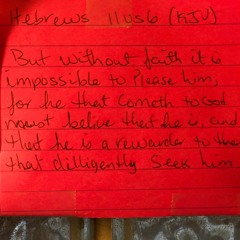 Hebrews 11 vs 6 (KJV)
But without faith it is
impossible to Please him,
for he that Cometh to God
must belive that he is, and
that he is a rewarder to the
that dilligently Seek him